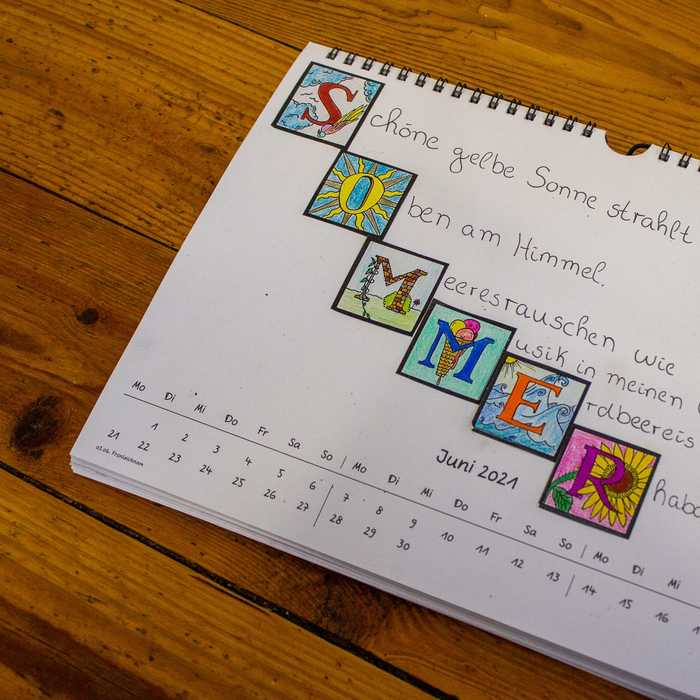 Schöne gelbe Sonne strahlt
Oben am Himmel.
Meeresrauschen wie
Musik in meinen
Erdbeereis
Juni 2021
Mo Di Mi Do Fr Sa So Mo Di Mi Do Fr Sa So Mo Di Mi
1 2 3 4 5 6 7 8 9 10 11 12 13 14 15 16
21 22 23 24 25 26 27 28 29 30
03.06. Fronleichnam